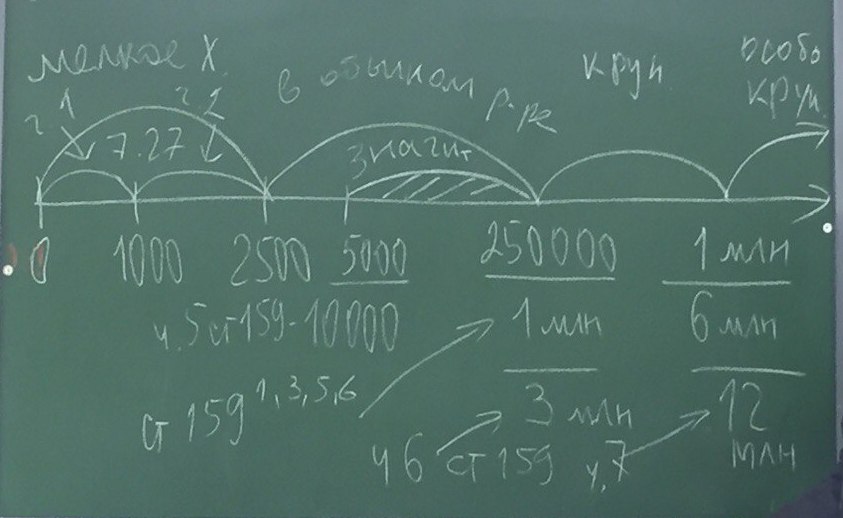 мелкое х. в обычном р-ре круп. особо круп.
ч 1 ч 2
7.27 значит
0 1000 2500 5000 250000 1 млн
ч.5 ст 159-10000 1 млн 6 млн
ст 159 1,3,5,6 3 млн 12 млн
ч 6 ст 159 ч,7